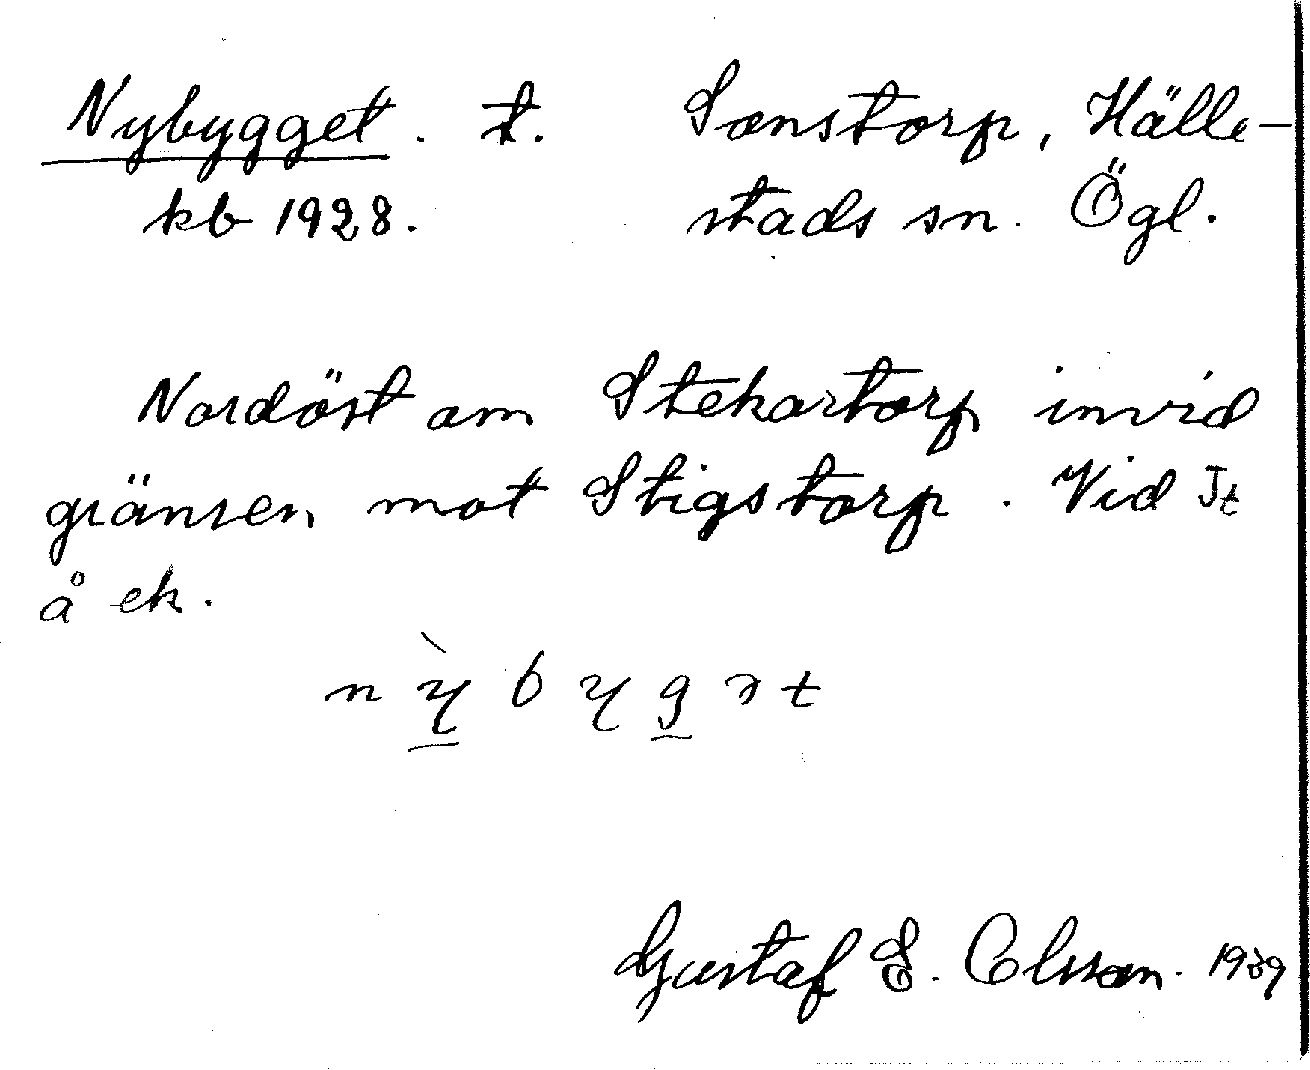 Nybygget. t. Sonstorp, Hälle-
kb 1928. stads sn. Ögl.
Nordöst om Stekartorp invid
gränsen mot Stigstorp. Vid Jt
å ek.
Gustaf E. Olsson. 1939